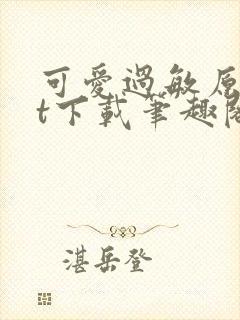 可愛過敏原
t下載筆趣閣
湛岳登